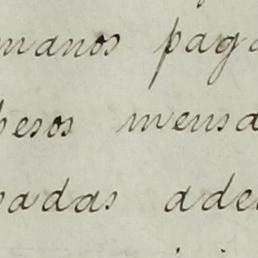 manos pag
pesos mensa
adas ade